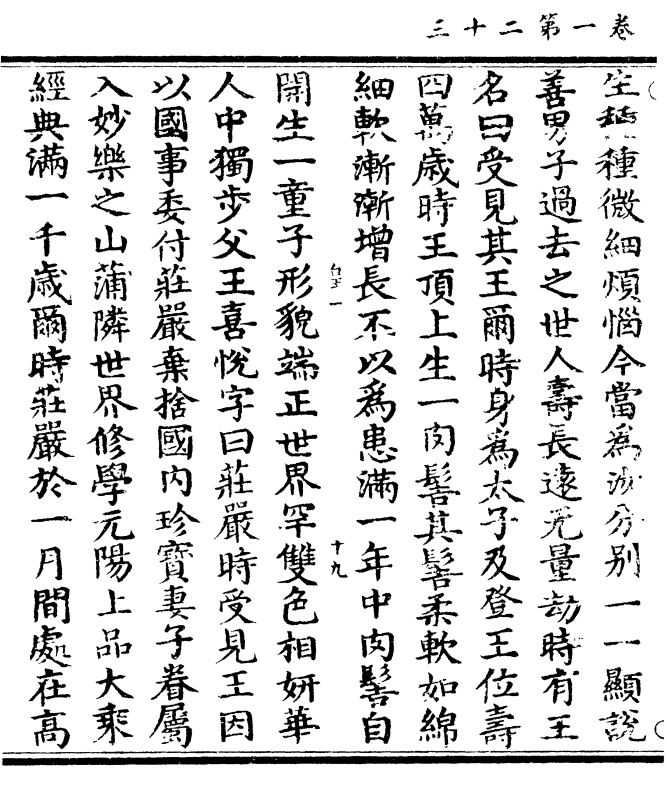 卷一第二十三
生種種微細煩惱今當為汝分別一一顯說
善男子過去之世人壽長遠无量劫時有王
名曰受見其王爾時身為太子及登王位壽
四萬歲時王頂上生一肉髻其髻柔軟如綿
細軟漸漸增長不以為患滿一年中肉髻自
十九
開生一童子形貌端正世界罕雙色相妍華
人中獨步父王喜悅字曰莊嚴時受見王因
以國事委付莊嚴棄捨國內珍寶妻子眷屬
入妙樂之山蒲隣世界修學元陽上品大乘
經典滿一千歲爾時莊嚴於一月間處在高